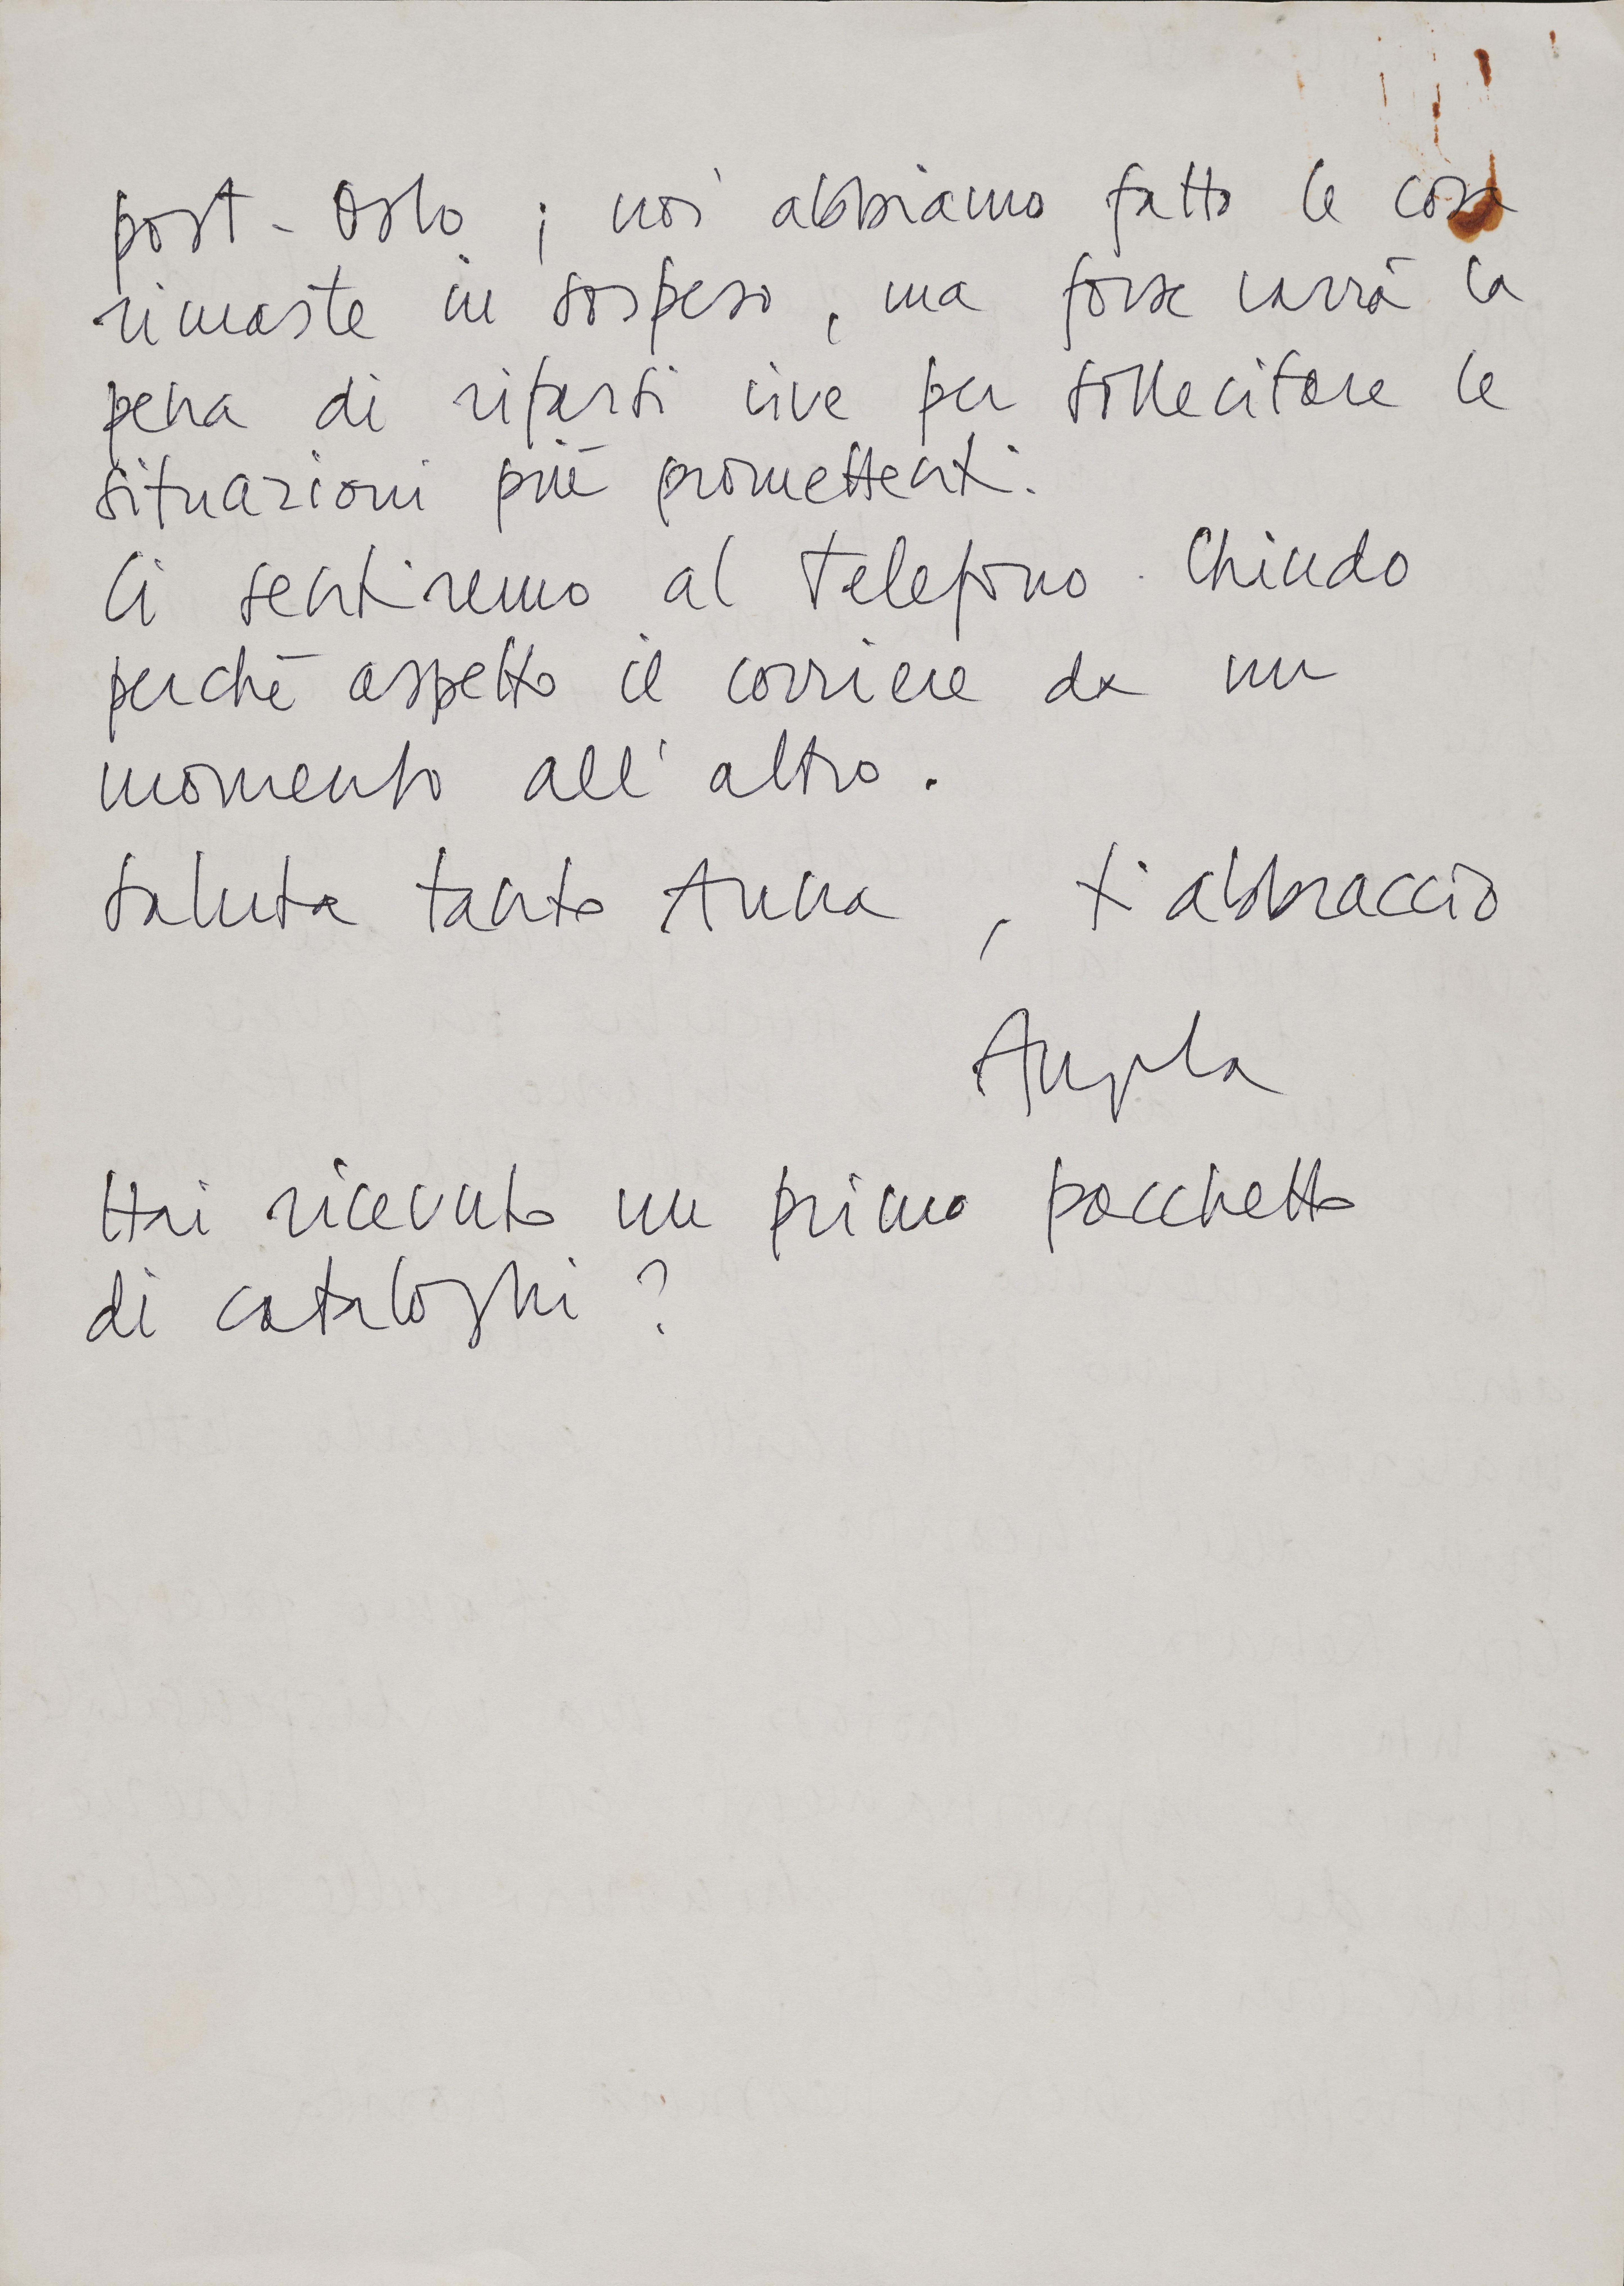 post-Oslo; noi abbiamo fatto le cose
rimaste in sospeso, ma forse varrà la
pena di rifarsi vive per sollecitare le
situazioni più promettenti.
Ci sentiremo al telefono. Chiudo
perchè aspetto il corriere da un
momento all'altro.
Saluta tanto Anna, ti abbraccio
Angela
Hai ricevuto un primo pacchetto
di cataloghi?